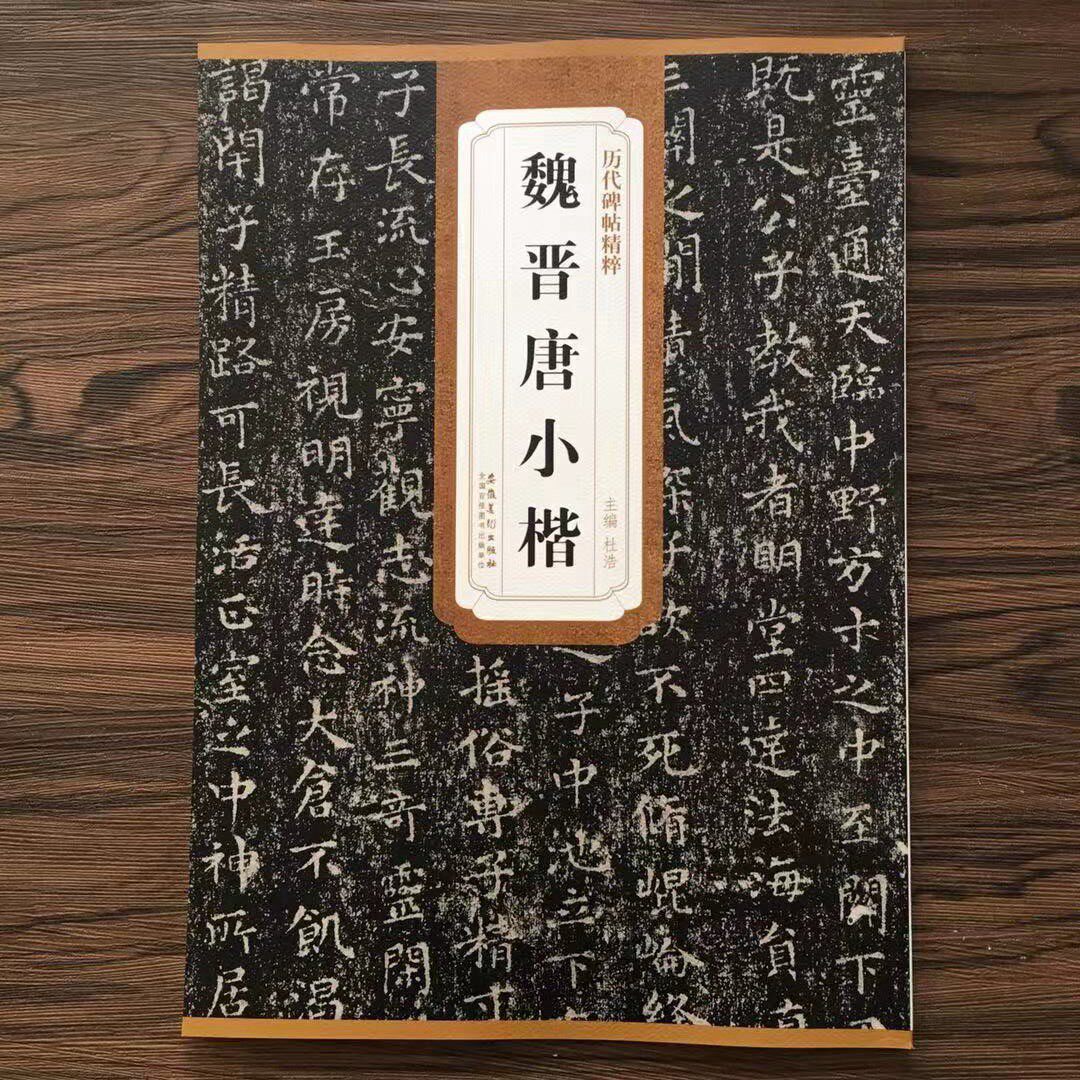 历代碑帖精粹
魏晋唐小楷
主编 杜浩
安徽美术出版社
全国百佳图书出版单位
靈臺通天臨中野方寸之中至關下
既是公子教我者明堂四達法海員真
三關之間精氣深子欲不死脩崐崘
子中池立下
搖俗專子精寸
子長流心安寧觀志流神三奇靈閑
常存玉房視明達時念大倉不飢渴
子精路可長活正室之中神所居